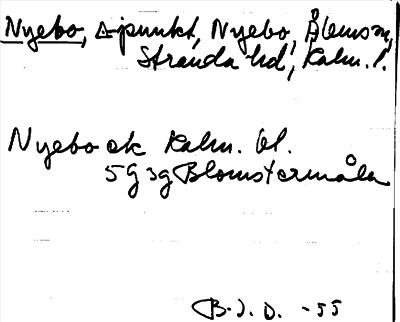 Nyebo, △-punkt, Nyebo, Ålems sn,
Stranda hd, Kalm. l.
Nyebo ek Kalm. bl.
5G 3g Blomstermåla
B.J.O. -55